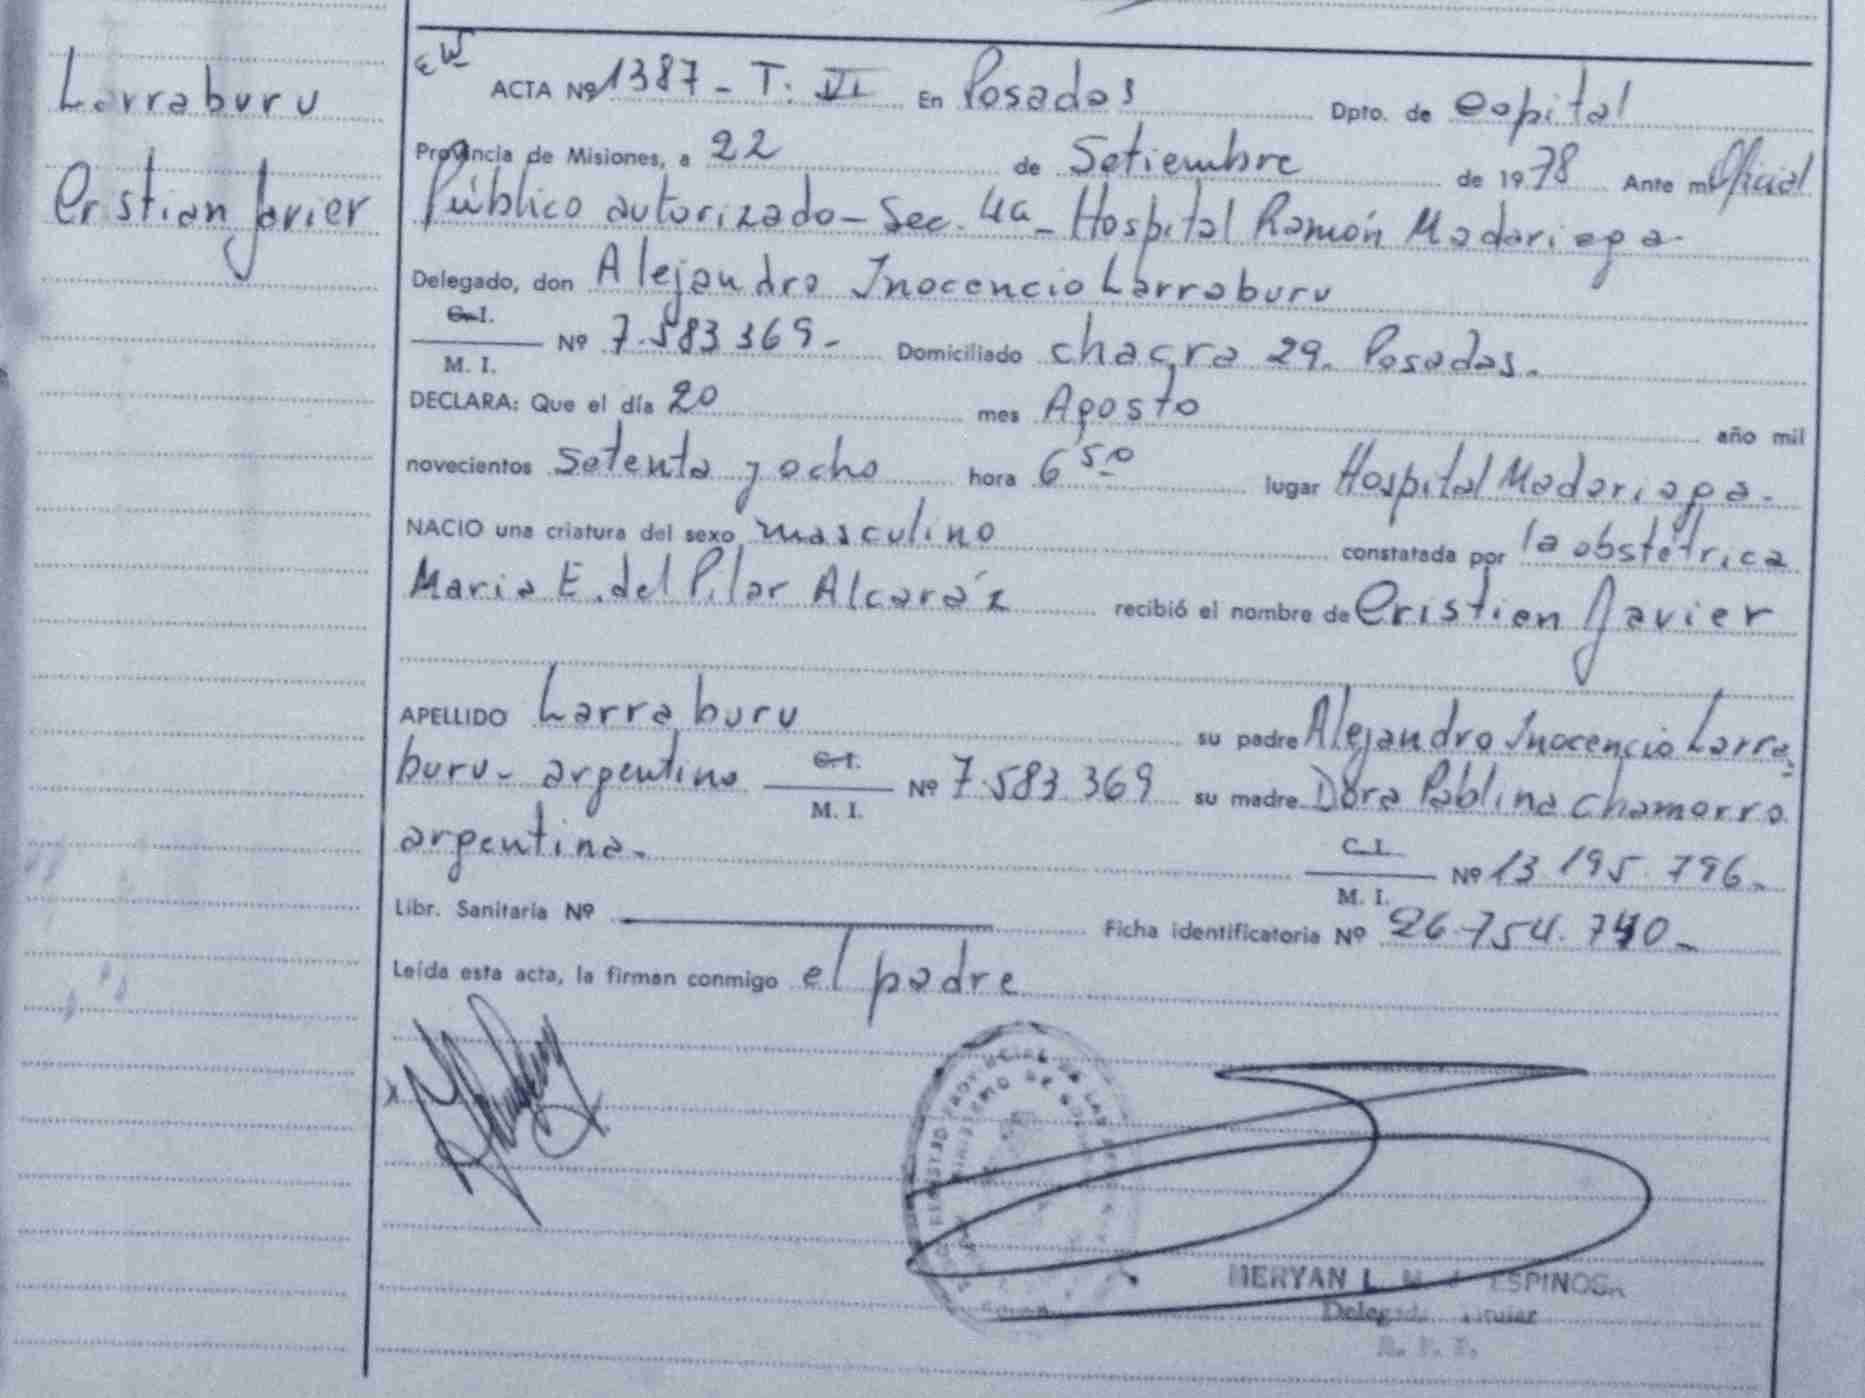 Larraburu
Cristian Javier
ACTA Nº 1387 - T. VI En Posadas Dpto. de Capital
Provincia de Misiones, a 22 de Setiembre de 1978 Ante mi Oficial
Público autorizado - Sec. 4a - Hospital Ramón Madariaga -
Delegado, don Alejandro Inocencio Larraburu
C. I.
M. I. Nº 7.583.369 - Domiciliado chacra 29. Posadas.
DECLARA: Que el día 20 mes Agosto año mil
novecientos setenta y ocho hora 6 50 lugar Hospital Madariaga -
NACIO una criatura del sexo masculino constatada por la obstétrica
Maria E. del Pilar Alcaráz recibió el nombre de Cristian Javier
APELLIDO Larraburu su padre Alejandro Inocencio Larra
buru - argentino C. I. M. I. Nº 7.583.369 su madre Dora Pablina Chamorro
argentina - C. I. M. I. Nº 13.195.796 -
Libr. Sanitaria Nº Ficha identificatoria Nº 26.754.740 -
Leída esta acta, la firman conmigo el padre
MERYAN L. ESPINOSA
Delegado Titular
R. P. P.